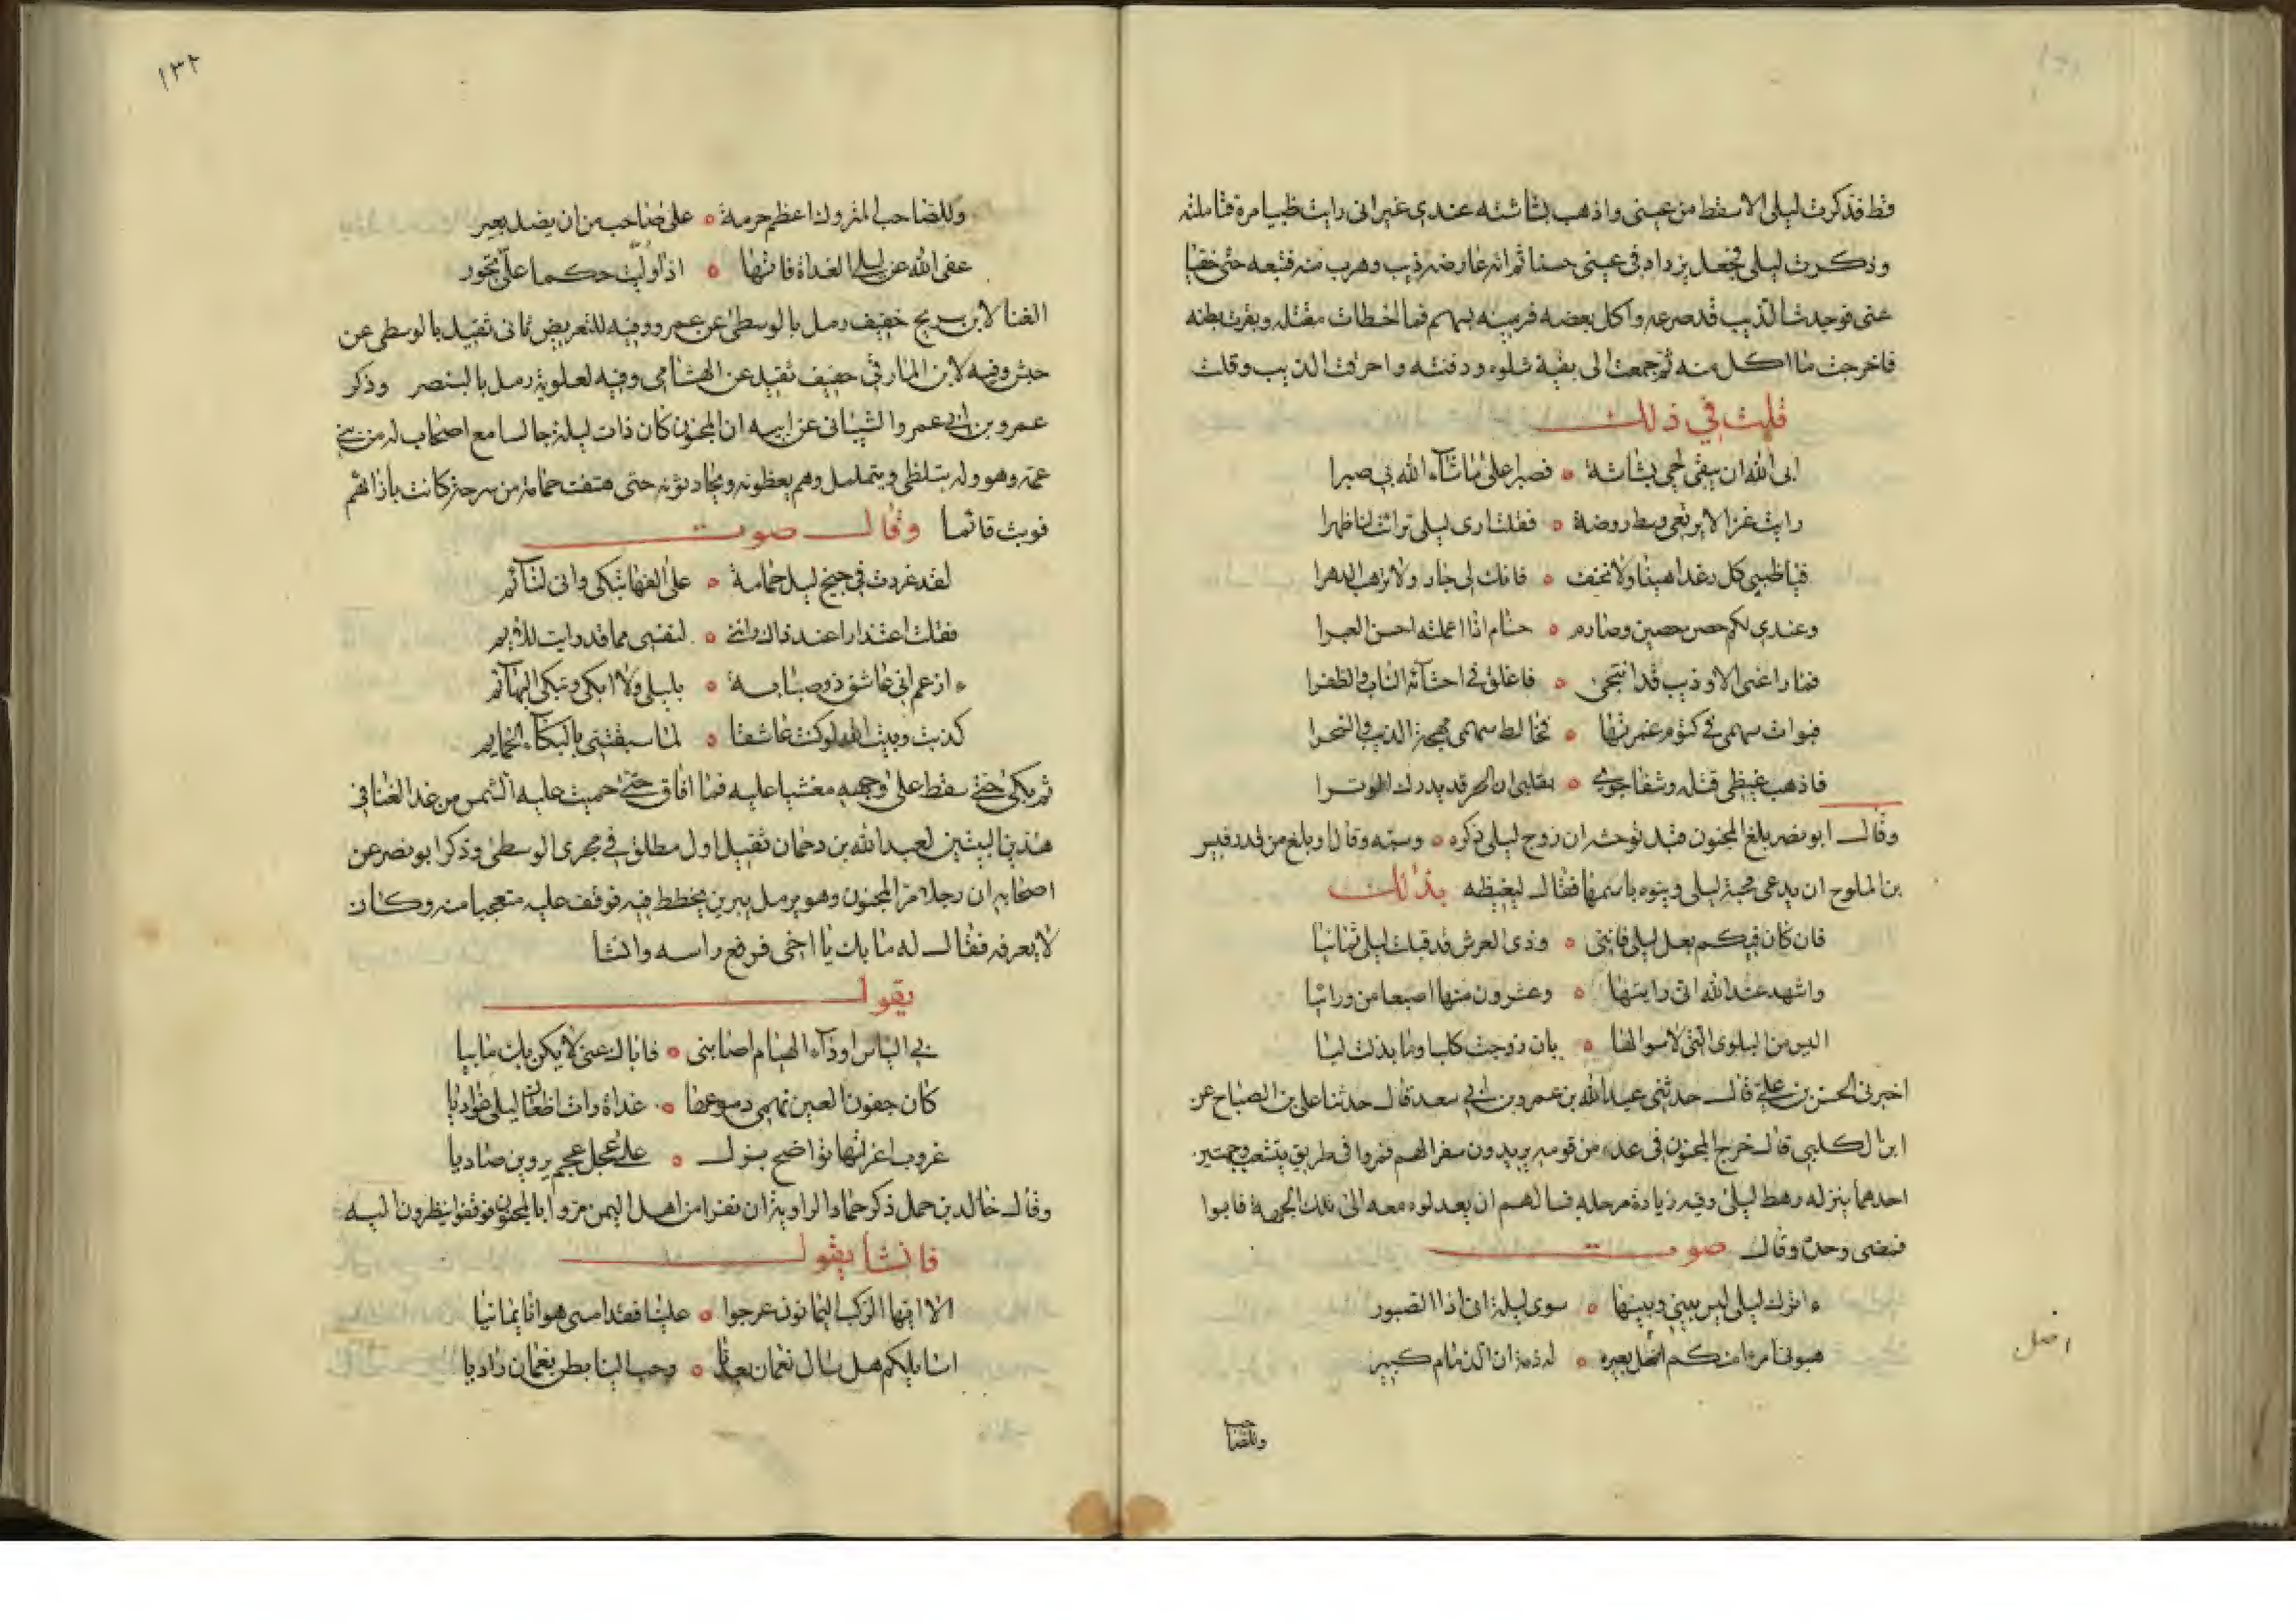 قط فذكرت ليلى الا سقط من عيني واذهب بشاشته عندي غير اني رايت ظبيا مرة فتاملته
وذكرت ليلى فجعل يزداد في عيني حسنا ثم انه عارضه ذيب وهرب منه فتبعه حتى خفيا
عني فوجدت الذيب قد صرعه واكل بعضه فرميته بسهم فما اخطات مقتله وبقرت بطنه
فاخرجت ما اكل منه ثم جمعته الى بقية شلوه ودفنته واحرقت الذيب وقلت
قلت في ذلك
ابى الله ان يبقى لحي بشاشة ه فصبرا على ما شآء الله بي صبرا
رايت غزالا يرتعي وسط روضة ه فقلت ارى ليلى ترات لنا ظهرا
فيا ظبي كل رغدا هنيئا ولا تخف ه فانك لي جار ولا ترهب الدهرا
وعندي لكم حصن حصين وصارم ه حسام اذا اعملته احسن الهبرا
فما راعني الا وذيب قد انتحى ه فاعلق في احشآئه الناب والظفرا
فبوات سهمي في كتوم غمزتها ه فخالط سهمي مهجة الذيب والنحرا
فاذهب غيظي قتله وشفا جوى ه بقلبي ان الحر قد يدرك الوترا
وقال ابو نصر بلغ المجنون قبل توحشه ان زوج ليلى ذكره ه وسبه وقال او بلغ من قدر قيس
بن الملوح ان يدعي محبة ليلى وينوه باسمها فقال ليغيظه بذلك
فان كان فيكم بعل ليلى فانني ه وذي العرش قد قبلت ليلى ثمانيا
واشهد عند الله اني رايتها ه وعشرون منها اصبعا من ورائيا
اليس من البلوى التي لا سوا لها ه بان زوجت كلبا وما بذلت ليا
اخبرني الحسن بن علي قال حدثني عبد الله بن عمرو بن ابي سعد قال حدثنا علي بن الصباح عن
ابن الكلبي قال خرج المجنون في عدة من قومه يريدون سفرا لهم فمروا في طريق يتشعب وجهتين
احدهما ينزله رهط ليلى وفيه زيادة مرحله فسالهم ان يعدلوه معه الى تلك الجهة فابوا
فمضى وحده وقال صوت
ءاترك ليلى ليس بيني وبينها ه سوى ليلة اني اذا لصبور
هبوني امرءا منكم اضل بعيره ه له ذمة ان الذمام كبير
اضل
وللصاحب
١٣٢
وللصاحب المتروك اعظم حرمة ه على صاحب من ان يضل بعير
عفى الله عن ليلى الغداة فانها ه اذا وليت حكما علي تجور
الغنا لابن سريج خفيف رمل بالوسطى عن عمرو وفيه للغريض ثاني ثقيل بالوسطى عن
حبش وفيه لابن المارقي خفيف ثقيل عن الهشامي وفيه لعلوية رمل بالبنصر وذكر
عمرو بن ابي عمرو الشيباني عن ابيه ان المجنون كان ذات ليلة جالسا مع اصحاب له من بني
عمه وهو وله يتلظى ويتململ وهم يعظونه ويحادثونه حتى هتفت حمامة من سرحة كانت بازائهم
فوثب قائما وقال صوت
لقد غردت في جنح ليل حمامة ه على الفها تبكي واني لنآئم
فقلت اعتذارا عند ذاك وانني ه لنفسي مما قد رايت للايم
ءازعم اني عاشق ذو صبابة ه بليلى ولا ابكي وتبكي البهآئم
كذبت وبيت الله لو كنت عاشقا ه لما سبقتني بالبكآء الحمايم
ثم بكى حتى سقط على وجهه مغشيا عليه فما افاق حتى حميت عليه الشمس من غد الغنا في
هذين البيتين لعبد الله بن دحمان ثقيل اول مطلق في مجرى الوسطى وذكر ابو نصر عن
اصحابه ان رجلا مر بالمجنون وهو برمل يبرين يخطط فيه فوقف عليه متعجبا منه وكان
لا يعرفه فقال له ما بك يا اخي فرفع راسه وانشا
يقول
بي الياس او دآء الهيام اصابني ه فاياك عني لا يكن بك ما بيا
كان جفون العين تهمي دموعها ه غداة رات اظعان ليلى غواديا
غروب اغرتها نواضح بزل ه على عجل عجم يروين صاديا
وقال خالد بن حمل ذكر حماد الراوية ان نفرا من اهل اليمن مروا بالمجنون فوقفوا ينظرون اليه
فانشا يقول
الا ايها الركب اليمانون عرجوا ه علينا فقد امسى هوانا يمانيا
اسايلكم هل سال نعمان بعدنا ه وحب الينا بطن نعمان واديا